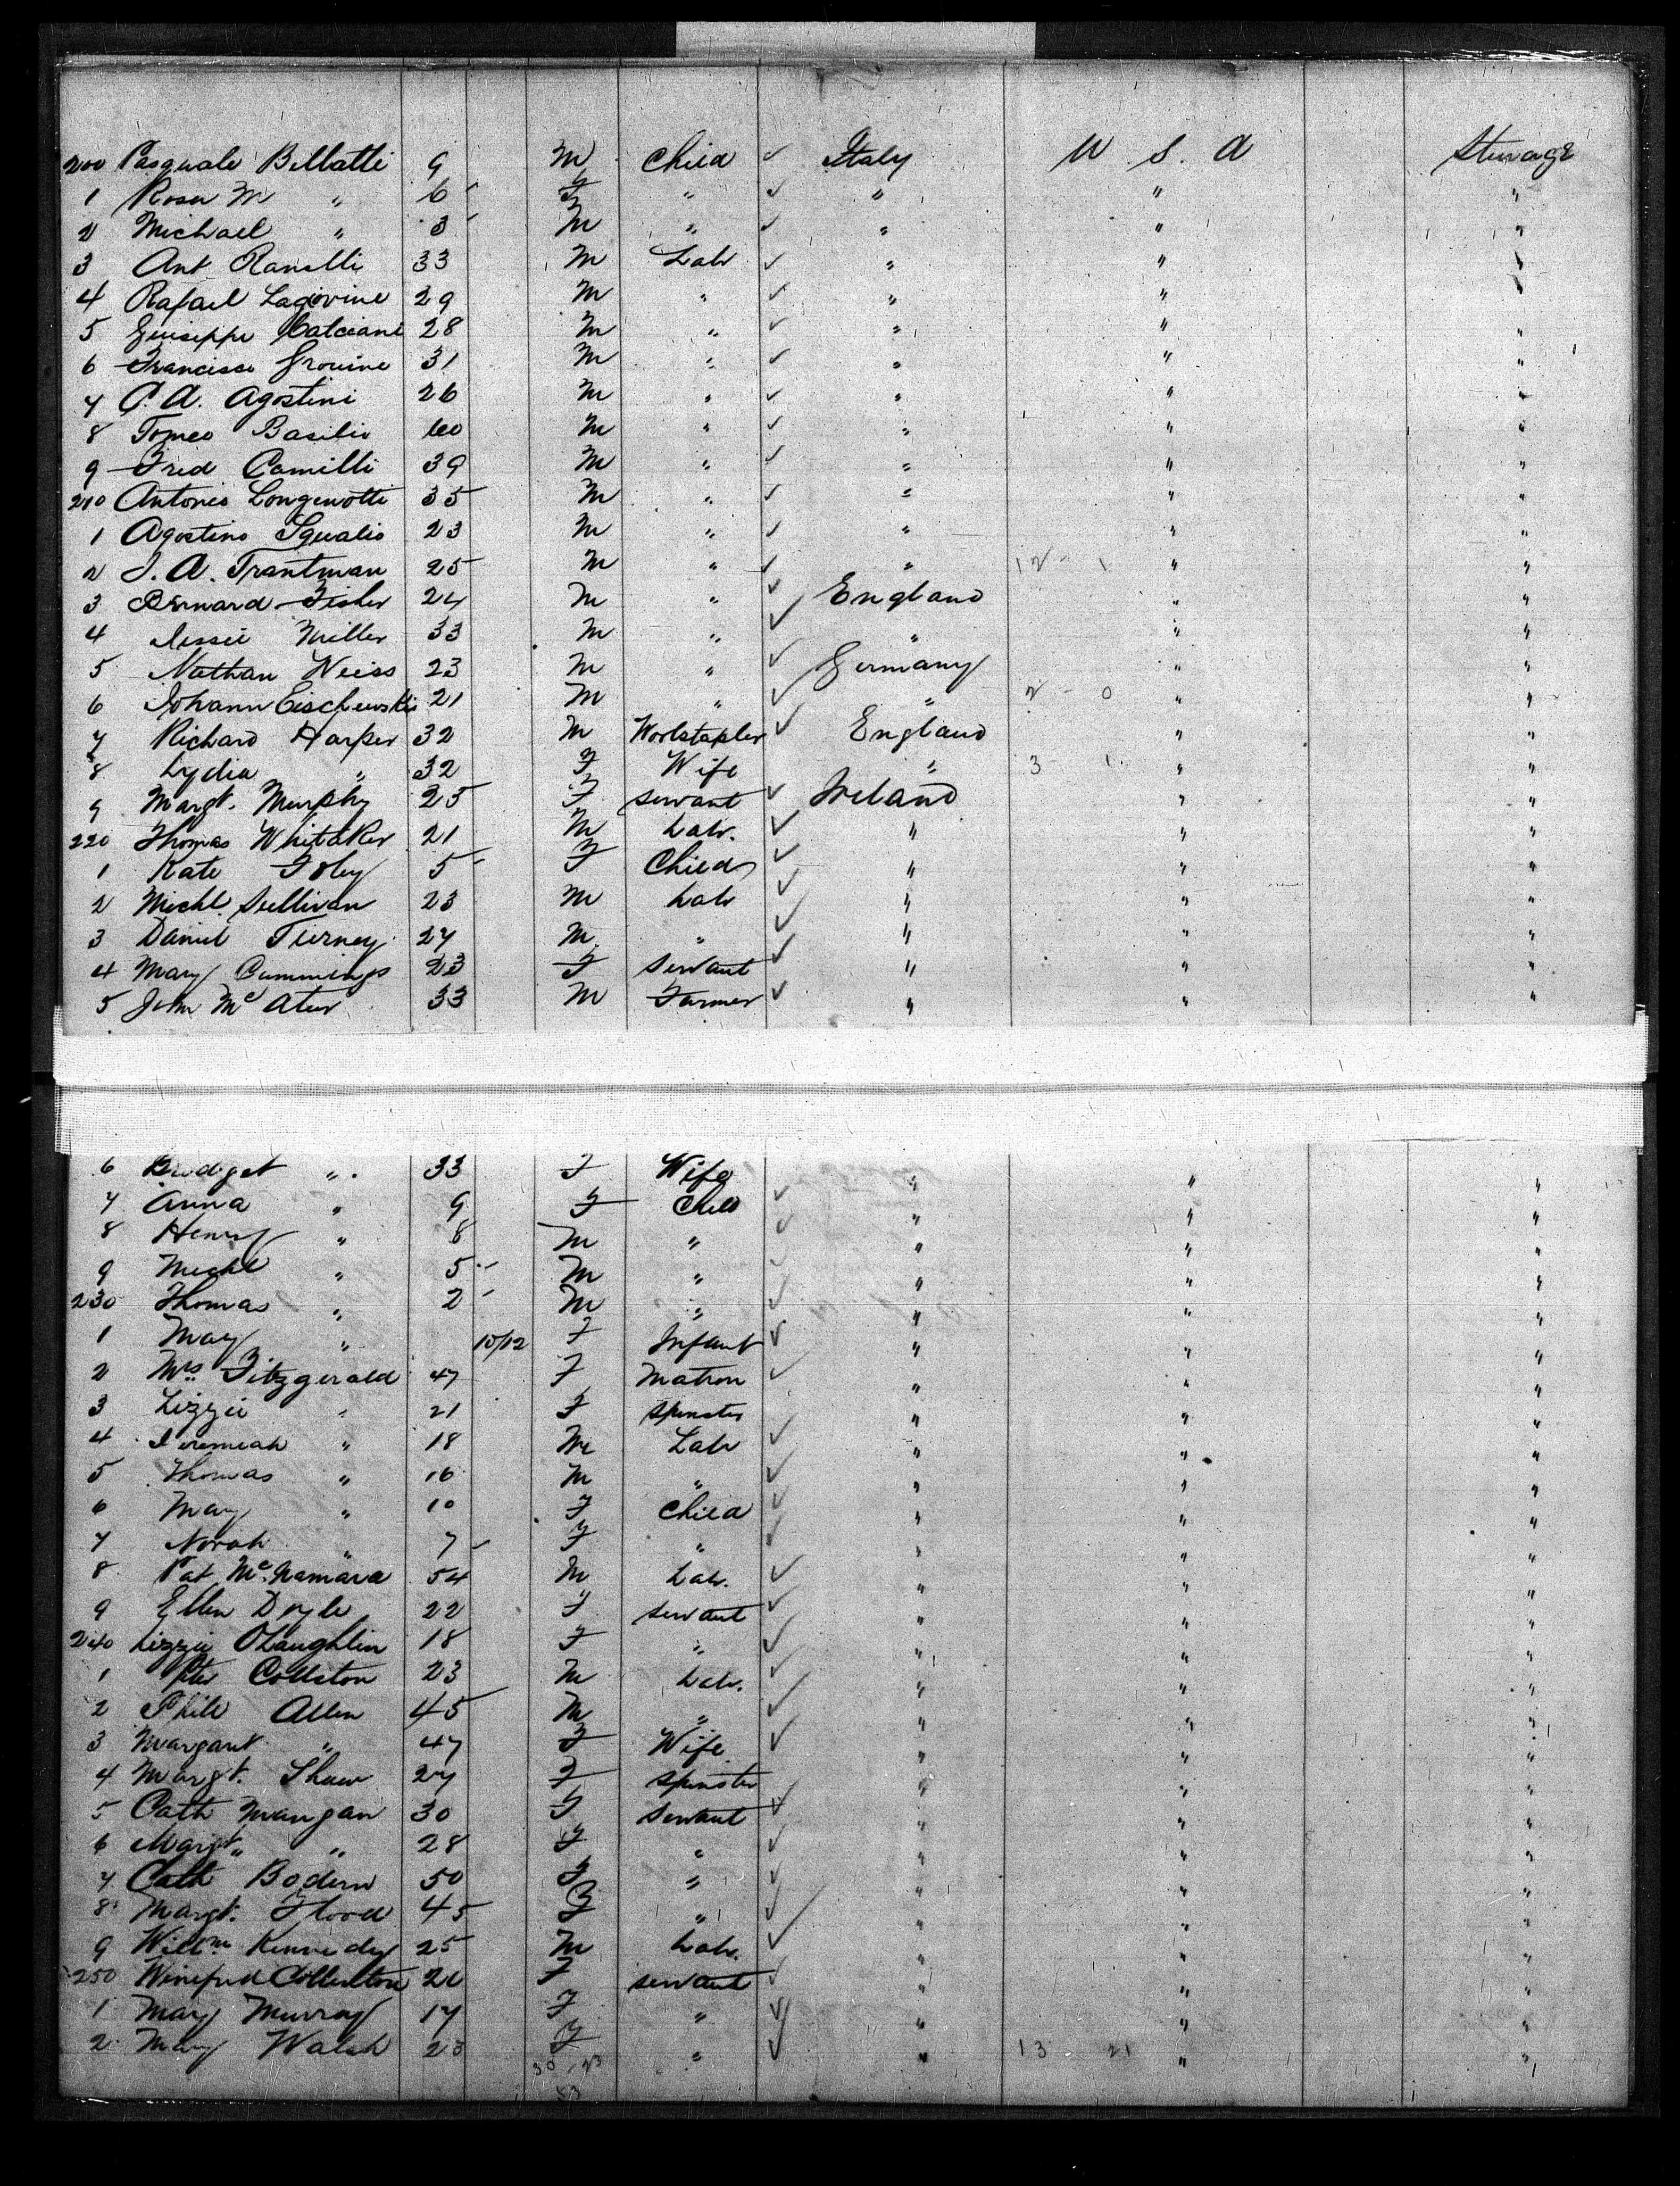 200 Pasquale Bellatti 9 M Child ✓ Italy U S. A Steerage
1 Rosa M " 6 F " ✓ " " "
2 Michael " 3 M " ✓ " " "
3 Ant Ranalli 33 M Labr ✓ " " "
4 Rafael Lagovine 29 M " ✓ " " "
5 Guiseppe Calciani 28 M " ✓ " " "
6 Francisco Grovine 31 M " ✓ " " "
7 A. Agostini 26 M " ✓ " " "
8 Tomeo Basilio 60 M " ✓ " " "
9 Fred Camilli 39 M " ✓ " " "
210 Antonio Longenotti 35 M " ✓ " " "
1 Agostino Squalio 23 M " ✓ " " "
2 A. Trantman 25 M " ✓ " 12 - 1 " "
3 Bernard Fisher 24 M " ✓ England " "
4 Jessie Miller 33 M " ✓ " " "
5 Nathan Weiss 23 M " ✓ Germany " "
6 Johann 21 M " ✓ " 2 - 0 " "
7 Richard Harper 32 M Worlstapler ✓ England " "
8 Lydia " 32 F Wife " 3 1 " "
9 Margt. Murphy 25 F Servant ✓ Ireland " "
220 Thomas Whitaker 21 M Labr. ✓ " " "
1 Kate Foley 5 F Child ✓ " " "
2 Michl. Sullivan 23 M Labr ✓ " " "
3 Daniel Tierney 27 M " ✓ " " "
4 Mary Cummings 23 F Servant ✓ " " "
5 John Mc Ateer 33 M Farmer ✓ " " "
6 Bridget " 33 F Wife " " "
7 Anna " 9 F Child ✓ " " "
8 Henry " 8 M " ✓ " " "
9 Michl " 5 M " ✓ " " "
230 Thomas " 2 M " ✓ " " "
1 May " 10/12 F Infant ✓ " " "
2 Mrs. Fitzgerald 47 F Matron ✓ " " "
3 Lizzie " 21 F Spinster " " "
4 Jeremiah " 18 M Labr ✓ " " "
5 Thomas " 16 M " ✓ " " "
6 May " 10 F Child ✓ " " "
7 Norah " 7 F " ✓ " " "
8 Pat Mc.Namara 54 M Labr. ✓ " " "
9 Ellen Doyle 22 F Servant ✓ " " "
240 Lizzie OLaughlin 18 F " ✓ " " "
1 Peter Colleton 23 M Labr. ✓ " " "
2 Phil Allen 45 M " ✓ " " "
3 Margaret " 47 F Wife ✓ " " "
4 Margt. Shaw 27 F Spinster " " "
5 Cath Mangan 30 F Servant ✓ " " "
6 Margt " 28 F " ✓ " " "
7 Cath Bodern 50 F " ✓ " " "
8 Margt. Flood 45 F " ✓ " " "
9 Willm Kennedy 25 M Labr. ✓ " " "
250 Winifred Colleton F servant ✓ " " "
1 May Murray 17 F " ✓ " " "
2 Mary Walsh 23 F " ✓ " 13 21 " "
30 23
53